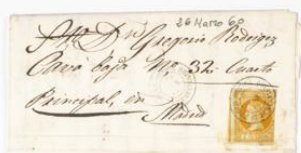 26 Marzo 60
Sr. Dn. Gregorio Rodriguez
Cava baja Nº 32. Cuarto
Principal, en
Madrid